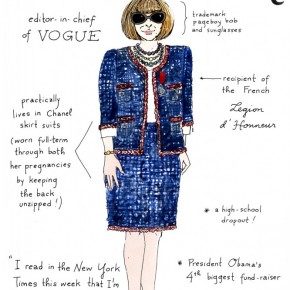 editor-in-chief
of VOGUE
trademark
pageboy bob
and sunglasses
recipient of
the French
Légion
d'Honneur
practically
lives in Chanel
skirt suits
(worn full-term
through both
her pregnancies
by keeping
the back
unzipped!)
* a high-school
dropout!
* President Obama's
4th biggest fund-raiser
"I read in the New York
Times this week that I'm